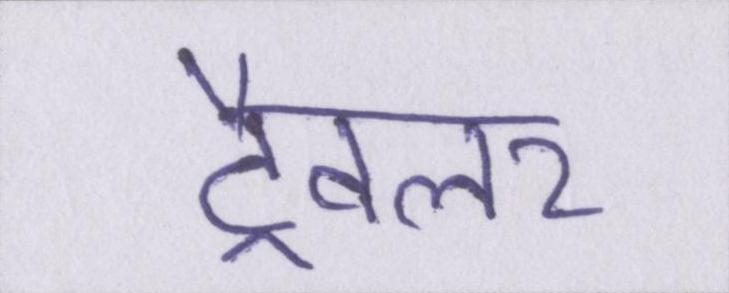 ट्रैवलर